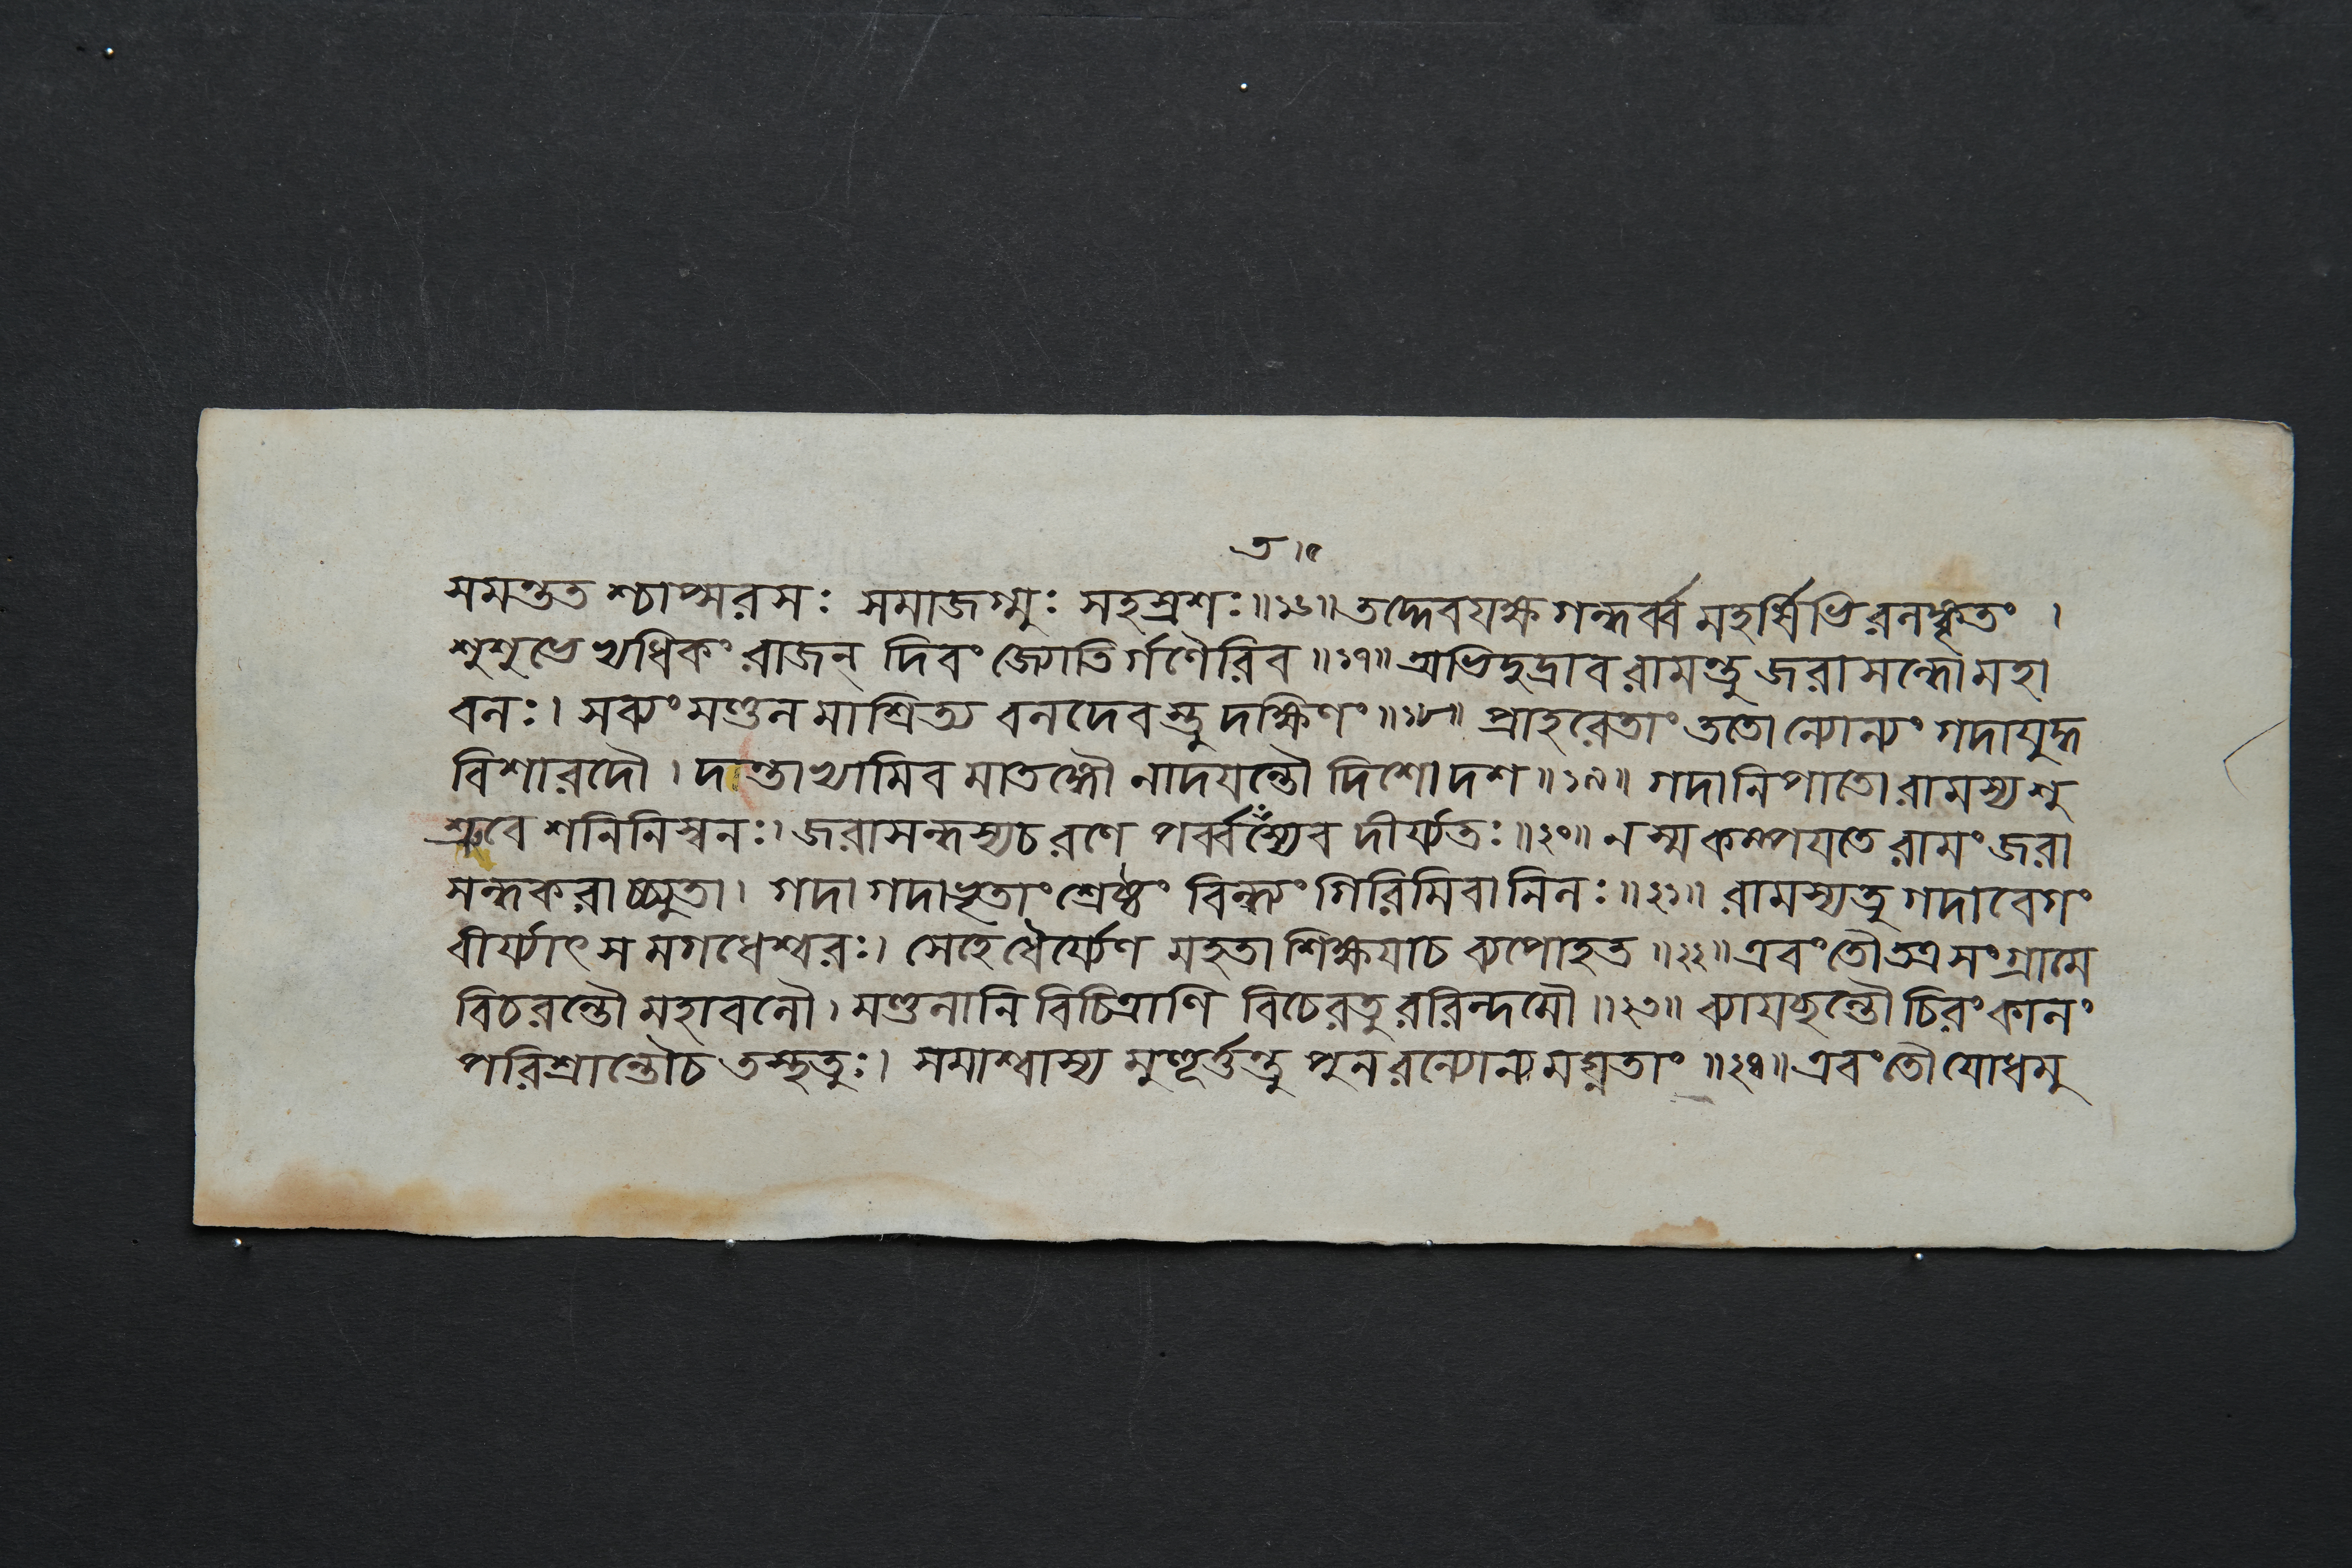 ত ।৫
সমন্তত শ্চাপ্সরসঃ সমাজগ্মুঃ সহস্রশঃ॥১৬॥ তদ্দেবযক্ষ গন্ধর্ব্ব মহর্ষিভি রলঙ্কৃতং ।
শুশুভেঽভ্যধিকং রাজন্ দিবং জ্যোতির্গণৈরিব ॥১৭॥ অভিদুদ্রাব রামন্তু জরাসন্ধো মহা
বলঃ। সব্যং মণ্ডল মাশ্রিত্য বলদেবস্তু দক্ষিণং ॥১৮॥ প্রাহরেতাং ততোন্যোন্যং গদাযুদ্ধ
বিশারদৌ । দন্তাভ্যামিব মাতঙ্গৌ নাদযন্তৌ দিশো দশ ॥১৯॥ গদানিপাতো রামস্য শু
শ্রুবে শনিনিস্বনঃ। জরাসন্ধস্য চ রণে পর্ব্বতস্যেব দীর্য্যতঃ ॥২০॥ ন স্ম কম্পযতে রামং জরা
সন্ধকরাচ্চ্যুতা। গদা গদাভৃতাং শ্রেষ্ঠং বিন্ধ্যং গিরিমিবানিলঃ ॥২১॥ রামস্য তু গদাবেগং
বীর্য্যাৎ স মগধেশ্বরঃ। সেহে ধৈর্য্যেণ মহতা শিক্ষযা চ ব্যপোহত ॥২২॥ এবং তৌ তত্র সংগ্রামে
বিচরন্তৌ মহাবলৌ। মণ্ডলানি বিচিত্রাণি বিচেরতু ররিন্দমৌ ॥২৩॥ ব্যাযচ্ছন্তৌ চিরং কালং
পরিশ্রান্তৌ চ তস্থতুঃ। সমাশ্বাস্য মুহূর্ত্তন্তু পুনরন্যোন্য মঘ্নতাং ॥২৪॥ এবং তৌ যোধমু